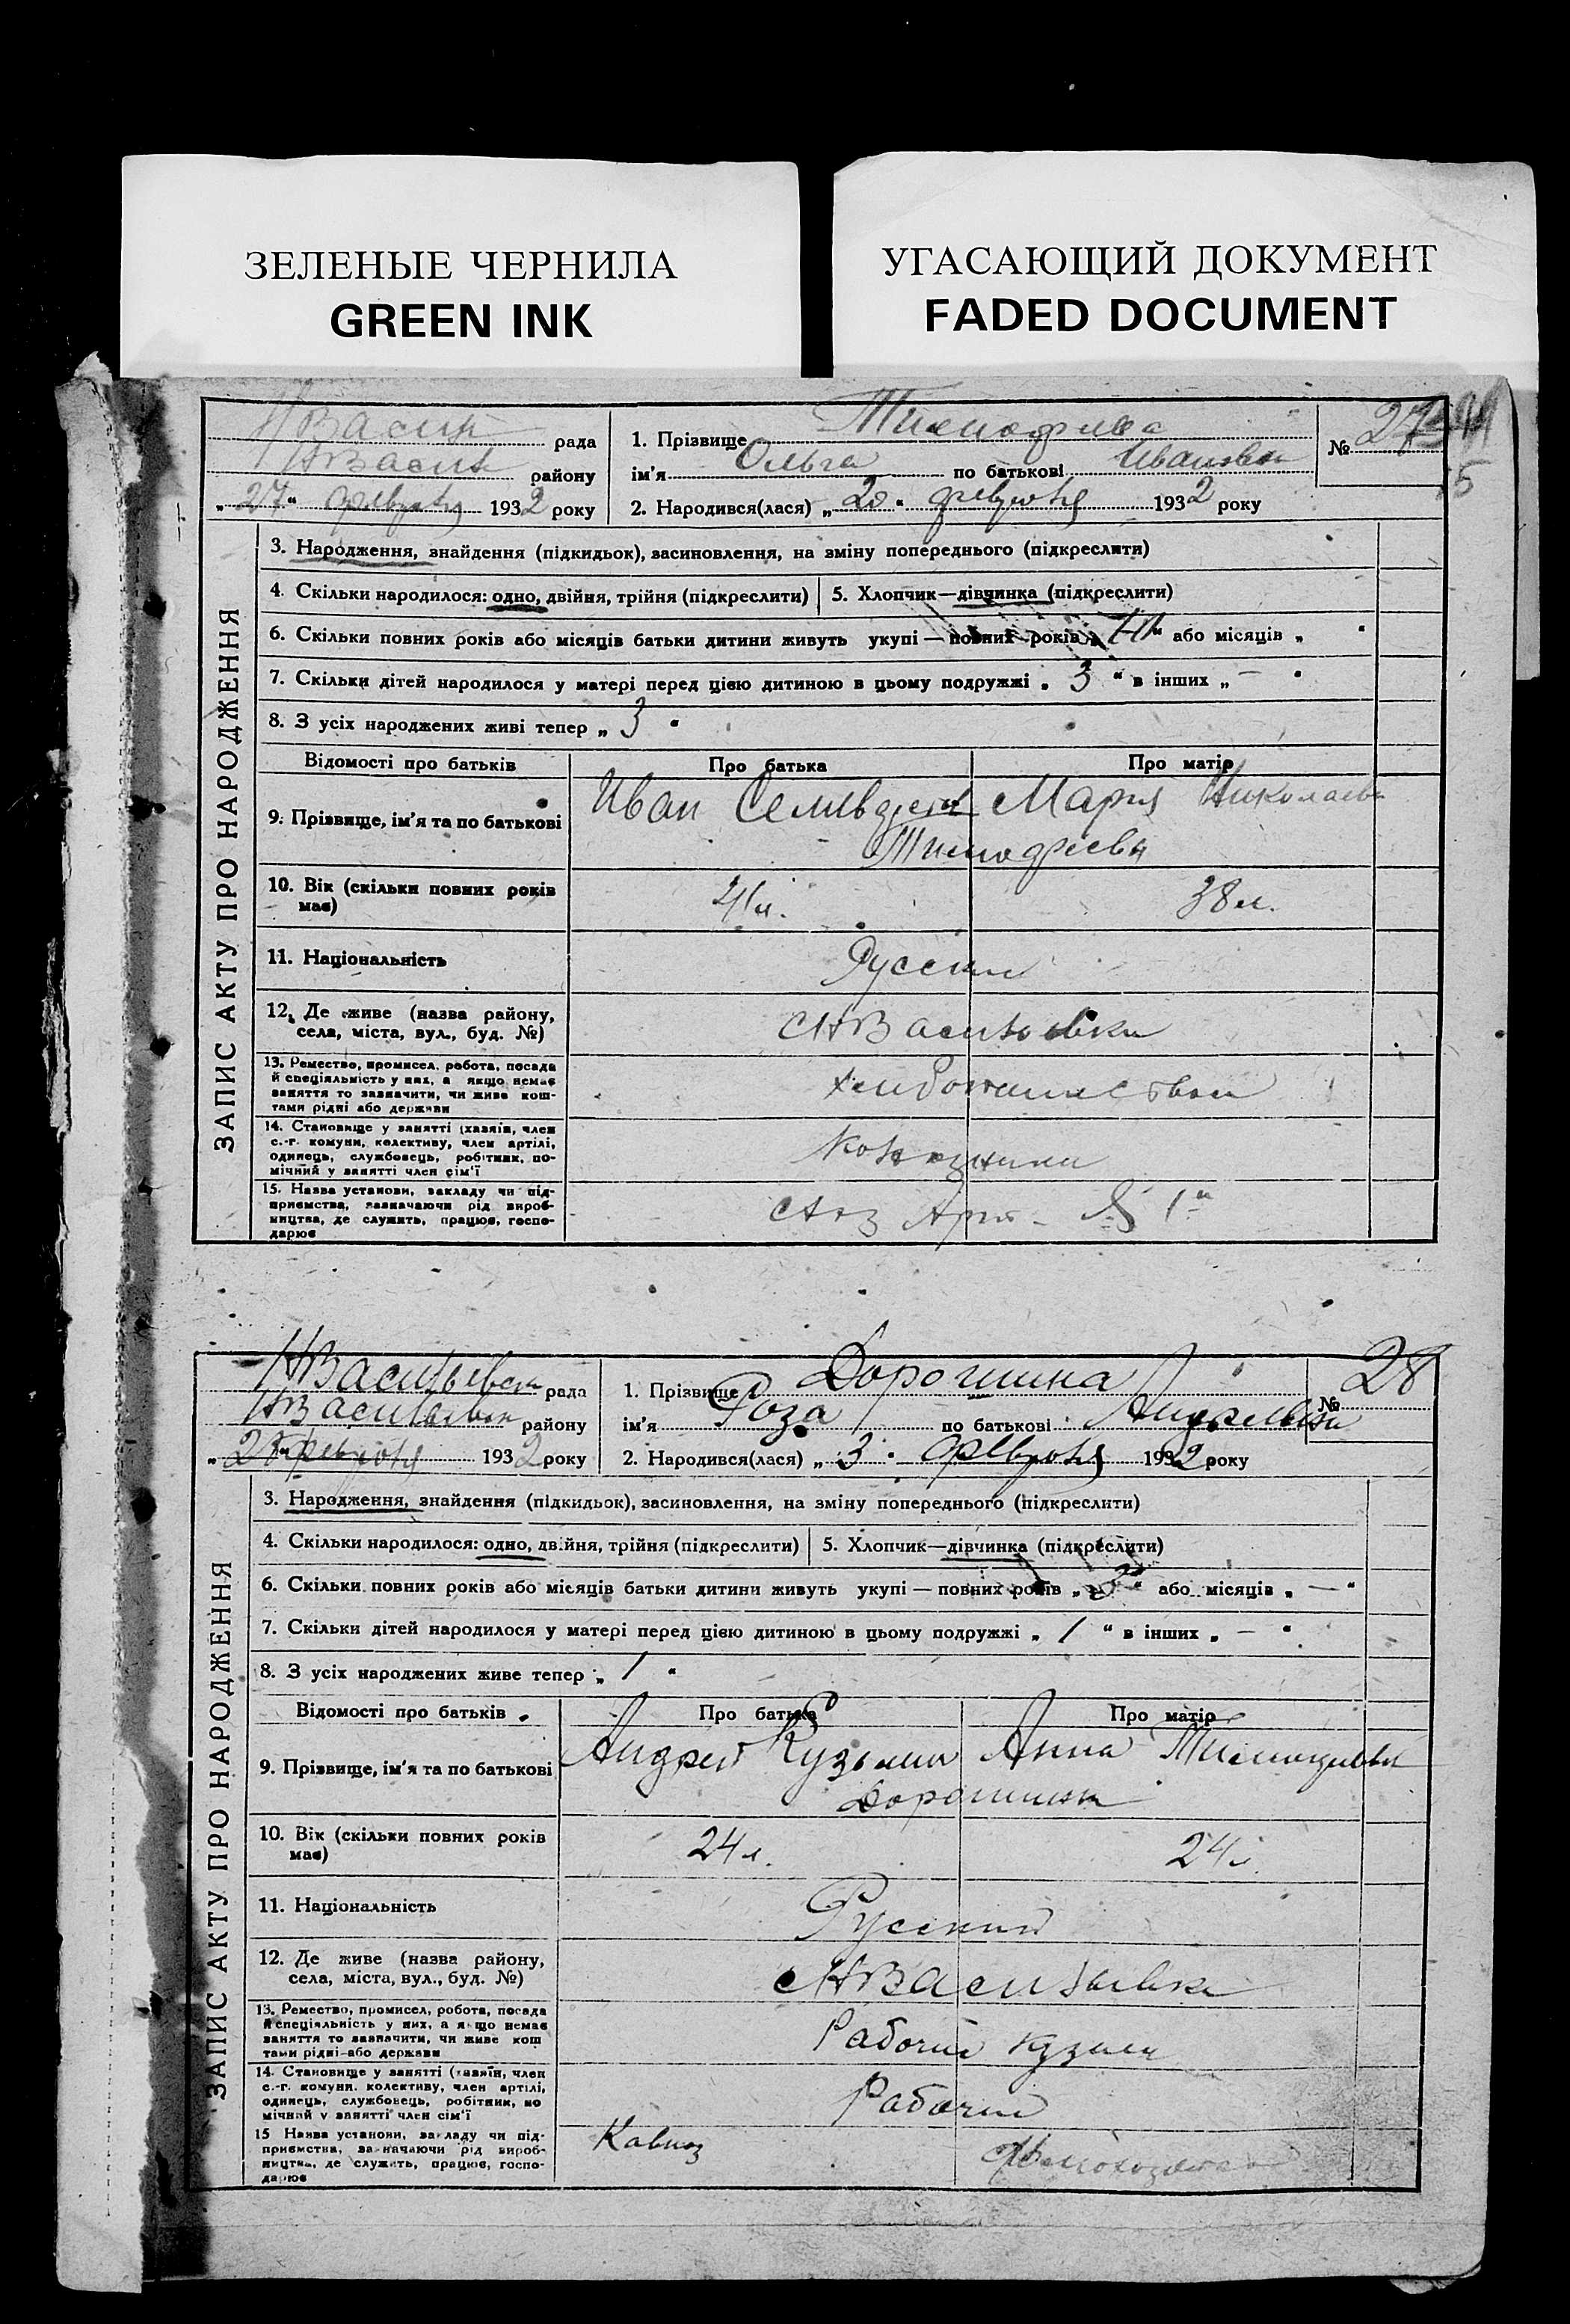 ЗЕЛЕНЫЕ ЧЕРНИЛА
GREEN INK
УГАСАЮЩИЙ ДОКУМЕНТ
FADED DOCUMENT
ЗАПИС АКТУ ПРО НАРОДЖЕННЯ
НВасил рада
НВасил району
„27“ февраля 1932 року
1. Прізвище
ім'я Ольга по батькові Ивановна
2. Народився(лася) „20“ февраля 1932 року
№ 27
3. Народження, знайдення (підкидьок), засиновлення, на зміну попереднього (підкреслити)
4. Скільки народилося: одно, двійня, трійня (підкреслити)
5. Хлопчик—дівчинка (підкреслити)
6. Скільки повних років або місяців батьки дитини живуть укупі — повних років „ “ або місяців „ “
7. Скільки дітей народилося у матері перед цією дитиною в цьому подружжі „3“ в інших „—“
8. З усіх народжених живі тепер „3“
Відомості про батьків
Про батька
Про матір
9. Прізвище, ім'я та по батькові
Иван
Мария Николаевн
10. Вік (скільки повних років
має)
41 л.
38 л.
11. Національність
Русские
12. Де живе (назва району,
села, міста, вул., буд. №)
с НВасильевка
13. Ремество, промисел, робота, посада
й спеціяльність у них, а якщо немає
заняття то зазначити, чи живе кош-
тами рідні або держави
14. Становище у занятті (хазяїн, член
с.-г. комуни, колективу, член артілі,
одинець, службовець, робітник, по-
мічний у занятті член сім'ї
15. Назва установи, закладу чи під-
приємства, зазначаючи рід вироб-
ництва, де служить, працює, госпо-
дарює
ЗАПИС АКТУ ПРО НАРОДЖЕННЯ
НВасильевск рада
НВасильевск району
„28“ февраля 1932 року
1. Прізвище Дорошина
ім'я Роза по батькові Андреевна
2. Народився(лася) „3“ февраля 1932 року
№ 28
3. Народження, знайдення (підкидьок), засиновлення, на зміну попереднього (підкреслити)
4. Скільки народилося: одно, двійня, трійня (підкреслити)
5. Хлопчик—дівчинка (підкреслити)
6. Скільки повних років або місяців батьки дитини живуть укупі — повних років „3“ або місяців „—“
7. Скільки дітей народилося у матері перед цією дитиною в цьому подружжі „1“ в інших „—“
8. З усіх народжених живе тепер „1“
Відомості про батьків
Про батька
Про матір
9. Прізвище, ім'я та по батькові
Андрей Кузьмич
Анна
Дорошины
10. Вік (скільки повних років
має)
24 л.
24 л.
11. Національність
Русский
12. Де живе (назва району,
села, міста, вул., буд. №)
с НВасильевка
13. Ремество, промисел, робота, посада
й спеціяльність у них, а якщо немає
заняття то зазначити, чи живе кош
тами рідні або держави
Рабочий
14. Становище у занятті (хазяїн, член
с.-г. комуни, колективу, член артілі,
одинець, службовець, робітник, по
мічний у занятті член сім'ї
Рабочий
15 Назва установи, закладу чи під-
приємства, зазначаючи рід вироб-
ництва, де служить, працює, госпо-
дарює